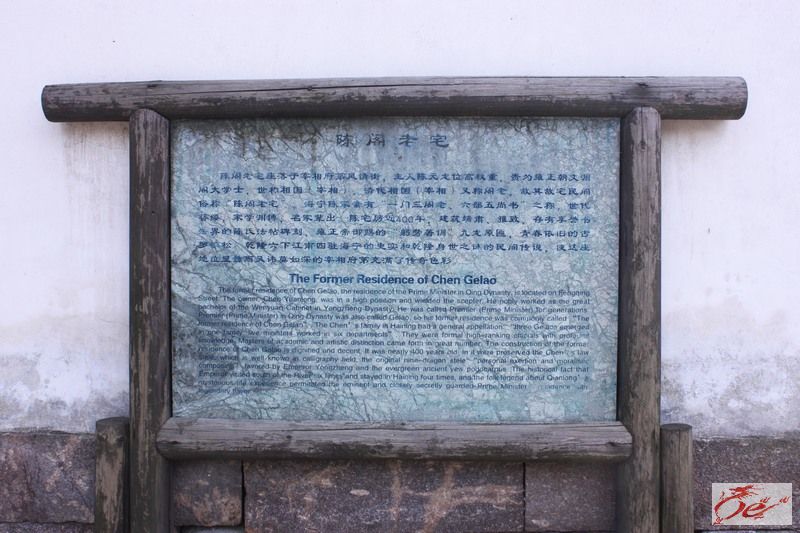 陈阁老宅
陈阁老宅座落于宰相府第风情街，主人陈元龙位高权重，贵为雍正朝文渊
阁大学士，世称相国（宰相），清代相国（宰相）又称阁老，故其故宅民间
俗称“陈阁老宅”。海宁陈家素有“一门三阁老，六部五尚书”之称，世代
簪缨，宋学渊博，名家辈出。陈宅历近400年，建筑端肃、雅致，存有享誉书
法界的陈氏法帖碑刻，雍正帝御赐的“躬劳著训”九龙原匾，青春依旧的古
罗汉松。乾隆六下江南四驻海宁的史实和乾隆身世之谜的民间传说，使这座
地位显赫而又讳莫如深的宰相府第充满了传奇色彩。
The Former Residence of Chen Gelao
The former residence of Chen Gelao, the residence of the Prime Minister in Qing Dynasty, is located on Fengqing
Street. The owner, Chen Yuanlong, was in a high position and wielded the scepter. He nobly worked as the great
bachelor of the Wenyuan Cabinet in Yongzheng Dynasty. He was called Premier (Prime Minister) for generations.
Premier (Prime Minister) in Qing Dynasty was also called Gelao, so his former residence was commonly called "The
former residence of Chen Gelao". The Chen's family in Haining had a general appellation: "three Gelaos emerged
in one family, five ministers worked in six departments". They were formal high-ranking officials with profound
knowledge. Masters of academic and artistic distinction came forth in great number. The construction of the former
residence of Chen Gelao is dignified and decent. It was nearly 400 years old. In it were preserved the Chen's law
table which is well-known in calligraphy field, the original nine-dragon stele "personal exertion and moralistic
composing" favored by Emperor Yongzheng and the evergreen ancient yew podocarpus. The historical fact that
Emperor visited south of the River six times and stayed in Haining four times, and the folk legend about Qianlong's
mysterious life experience permeated the eminent and closely secretly guarded Prime Minister's residence with
legendary flavor.